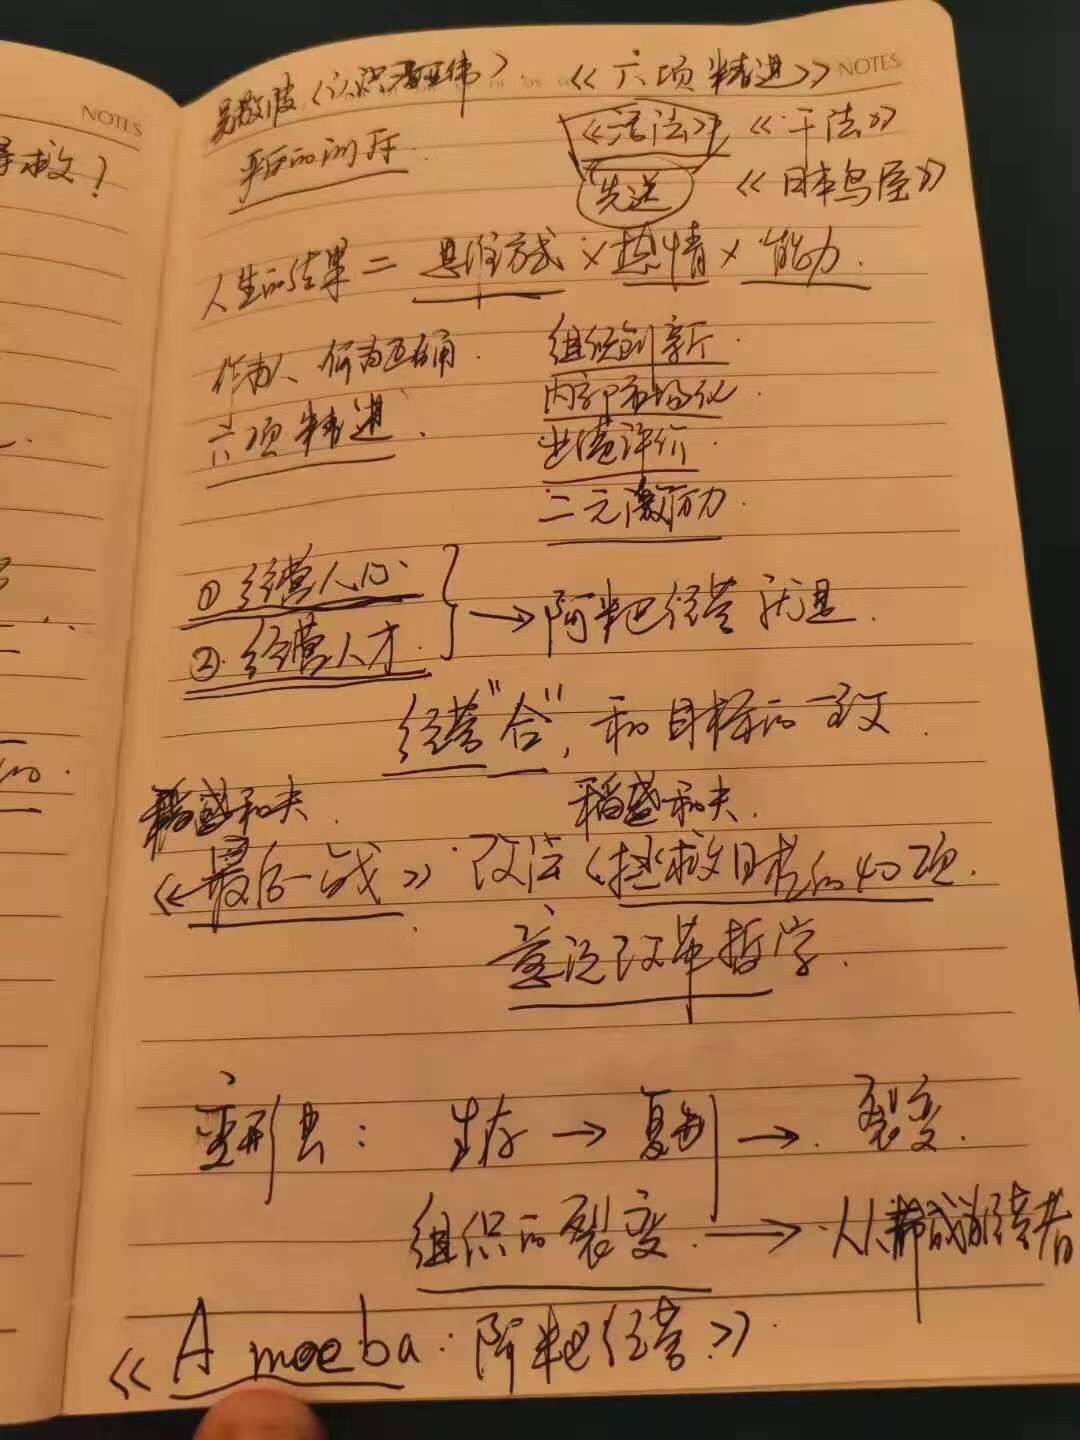 NOTES
NOTES
救？
《六项精进》
《活法》 《干法》
先送 《日本鸟屋》
人生的结果 = 思维方式 × 热情 × 能力.
作为人、何为正确.
组织创新.
六项精进.
内部市场化
业绩评价
二元激励力.
① 经营人心.
② 经营人才.
→ 阿米巴经营就是.
经营"合"，和目标的一致.
稻盛和夫. 稻盛和夫.
《最后一战》. 改法《拯救日本的40项.
意识改革哲学.
变形虫： 生存 → 复制 → 裂变.
组织的裂变. → 人人都成为经营者
《Amoeba·阿米巴经营》.